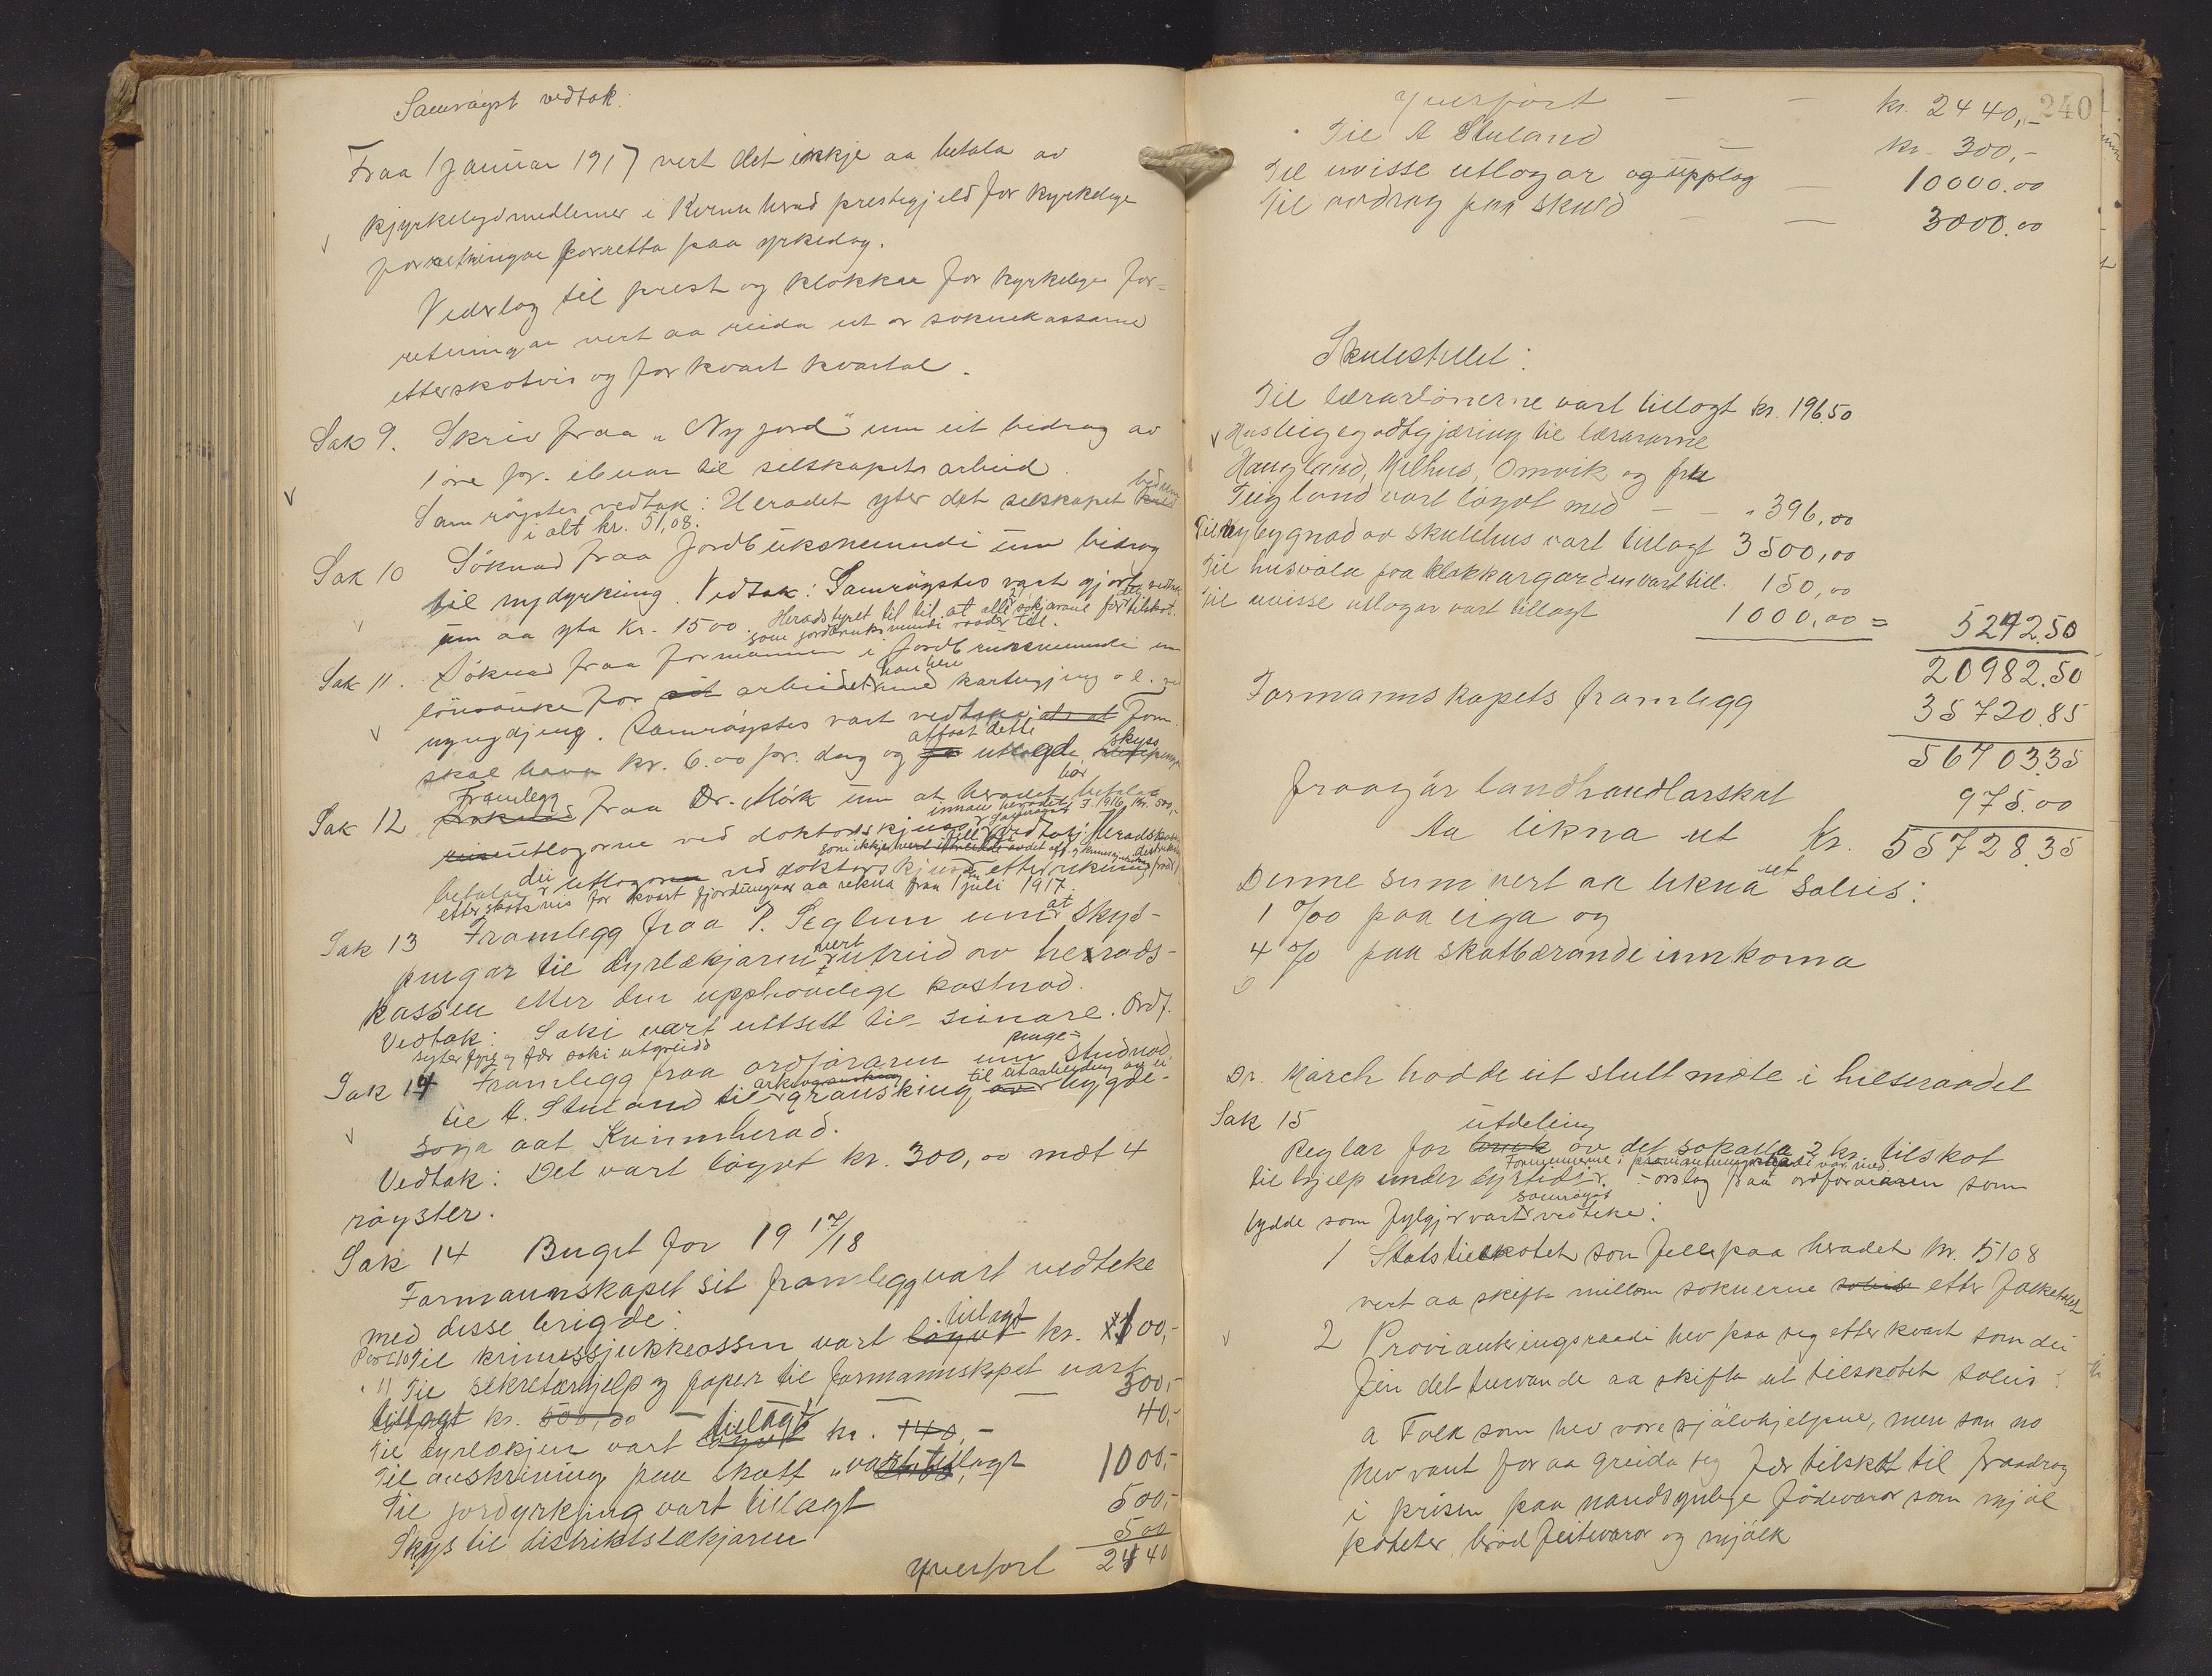 Samrøyst vedtak:
Fraa 1 januar 1917 vert det inkje aa betala av
kjyrkelydmedlemer i Kvinnherad prestegjeld for kyrkelege
forretningar forretta paa yrkedag.
Vederlag til prest og klokkar for kyrkelege for-
retningar vert aa reida ut av soknekassarne
etterskotvis og for kvart kvartal.
Sak 9. Skriv fraa "Ny jord" um eit bidrag av
1 øre pr. ibuar til selskapets arbeid.
Samrøystes vedtak: Heradet yter det selskapet bed um
i alt kr. 51,08.
Sak 10 Søknad fraa Jordbruksnemndi um bidrag
til nydyrking. Vedtak: Samrøystes vart gjort vedtak
um aa yta kr. 1500. Heradstyret til at alle søkjarane fær tilskot
som jordbruksnemndi raader til.
Sak 11. Søknad fraa formannen i Jordbruksnemndi um
lønsauke for arbeidet han hev med kartegjing o l. ved
nyrydjing. Samrøystes vart vedtak: Form.
skal hava kr. 6.00 pr. dag og attaat dette utlagde skyss
Sak 12 Framlegg fraa Dr. Mørk um at heradet betalar
utlogorne ved doktorskjuss innan heradet. I 1916 kr. 500,-
Samrøystes vedtak: Heradskassa
betalar dei utlogor ved doktorskjuss etter rekning
etterskotsvis for kvart fjordungaar aa rekna fraa 1 juli 1917.
Sak 13 Framlegg fraa P. Seglem um at skys-
pengar til dyrlækjaren vert utreid av herads-
kassen etter den upphavelege kostnad.
Vedtak: Saki vart utsett til seinare. Ordf.
syter fyre og fær saki utgreidd
Sak 14 Framlegg fraa ordføraren um penge-
studnad
til A. Stuland til arkivgransking til utarbeiding av ei bygde-
soga aat Kvinnherad.
Vedtak: Det vart løyvt kr. 300,00 mot 4
røyster.
Sak 14 Buget for 19 17/18
Formannskapet sit framlegg vart vedteke
med disse brigde:
Post 10 Til krinssjukkassen vart tillagt kr. 100,-
" 11 Til sekretærhjelp og papir til formannskapet vart
tillagt kr. 500,00 — 300,-
Til dyrlækjen vart tillagt kr. 140,- 40,-
Til auskrivning paa skatt vart tillagt 1000,-
Til jorddyrkjing vart tillagt 500,-
Skyss til distriktslækjaren 500
yverført 2440
240
yverført — — kr. 2440,-
Til A Stuland — kr. 300,-
Til uvisse utlogor og upplag 10000.00
Til avdrag paa skuld — 3000.00
Skulestellet:
Til lærarlønerne vart tillagt kr. 196.50
Husleigegodtgjæring til lærararne
Haugland, Milhus, Omvik og fru
Teigland vart løyvt med — — " 396,00
Til nybygnad av skulehus vart tillagt 3500,00
Til husvøla paa klokkargarden vart till. 150,00
Til uvisse utlogor vart tillagt 1000,00 = 5242.50
20982.50
Formannskapets framlegg 35720.85
56703.35
fraagår landhandlarskat 975.00
Aa likna ut kr. 55728.35
Denne sum vert aa likna ut soleis:
1 ‰ paa eiga og
4 % paa skatbærande innkoma
Dr. March hadde eit stutt møte i helseraadet
Sak 15
Reglar for utdeling av det sokalla 2 kr. tilskot
til hjelp under dyrtidi. Formennerne i proviantningsraadi var med.
Forslag fraa ordføraren som
lydde som fylgjer vart samrøystes vedteke:
1 Statstilskotet som fell paa heradet kr. 5108
vert aa skifta millom soknerne etter folketalet
2 Provianteringsraadi hev paa seg etter kvart som dei
finn det turvande aa skifta ut tilskotet soleis:
a Folk som hev vore sjølvhjelpne, men som no
hev vant for aa greida seg fær tilskot til fraadrag
i prisen paa naudsynlege fødevaror som mjøl
poteter, brød feitevaror og mjølk